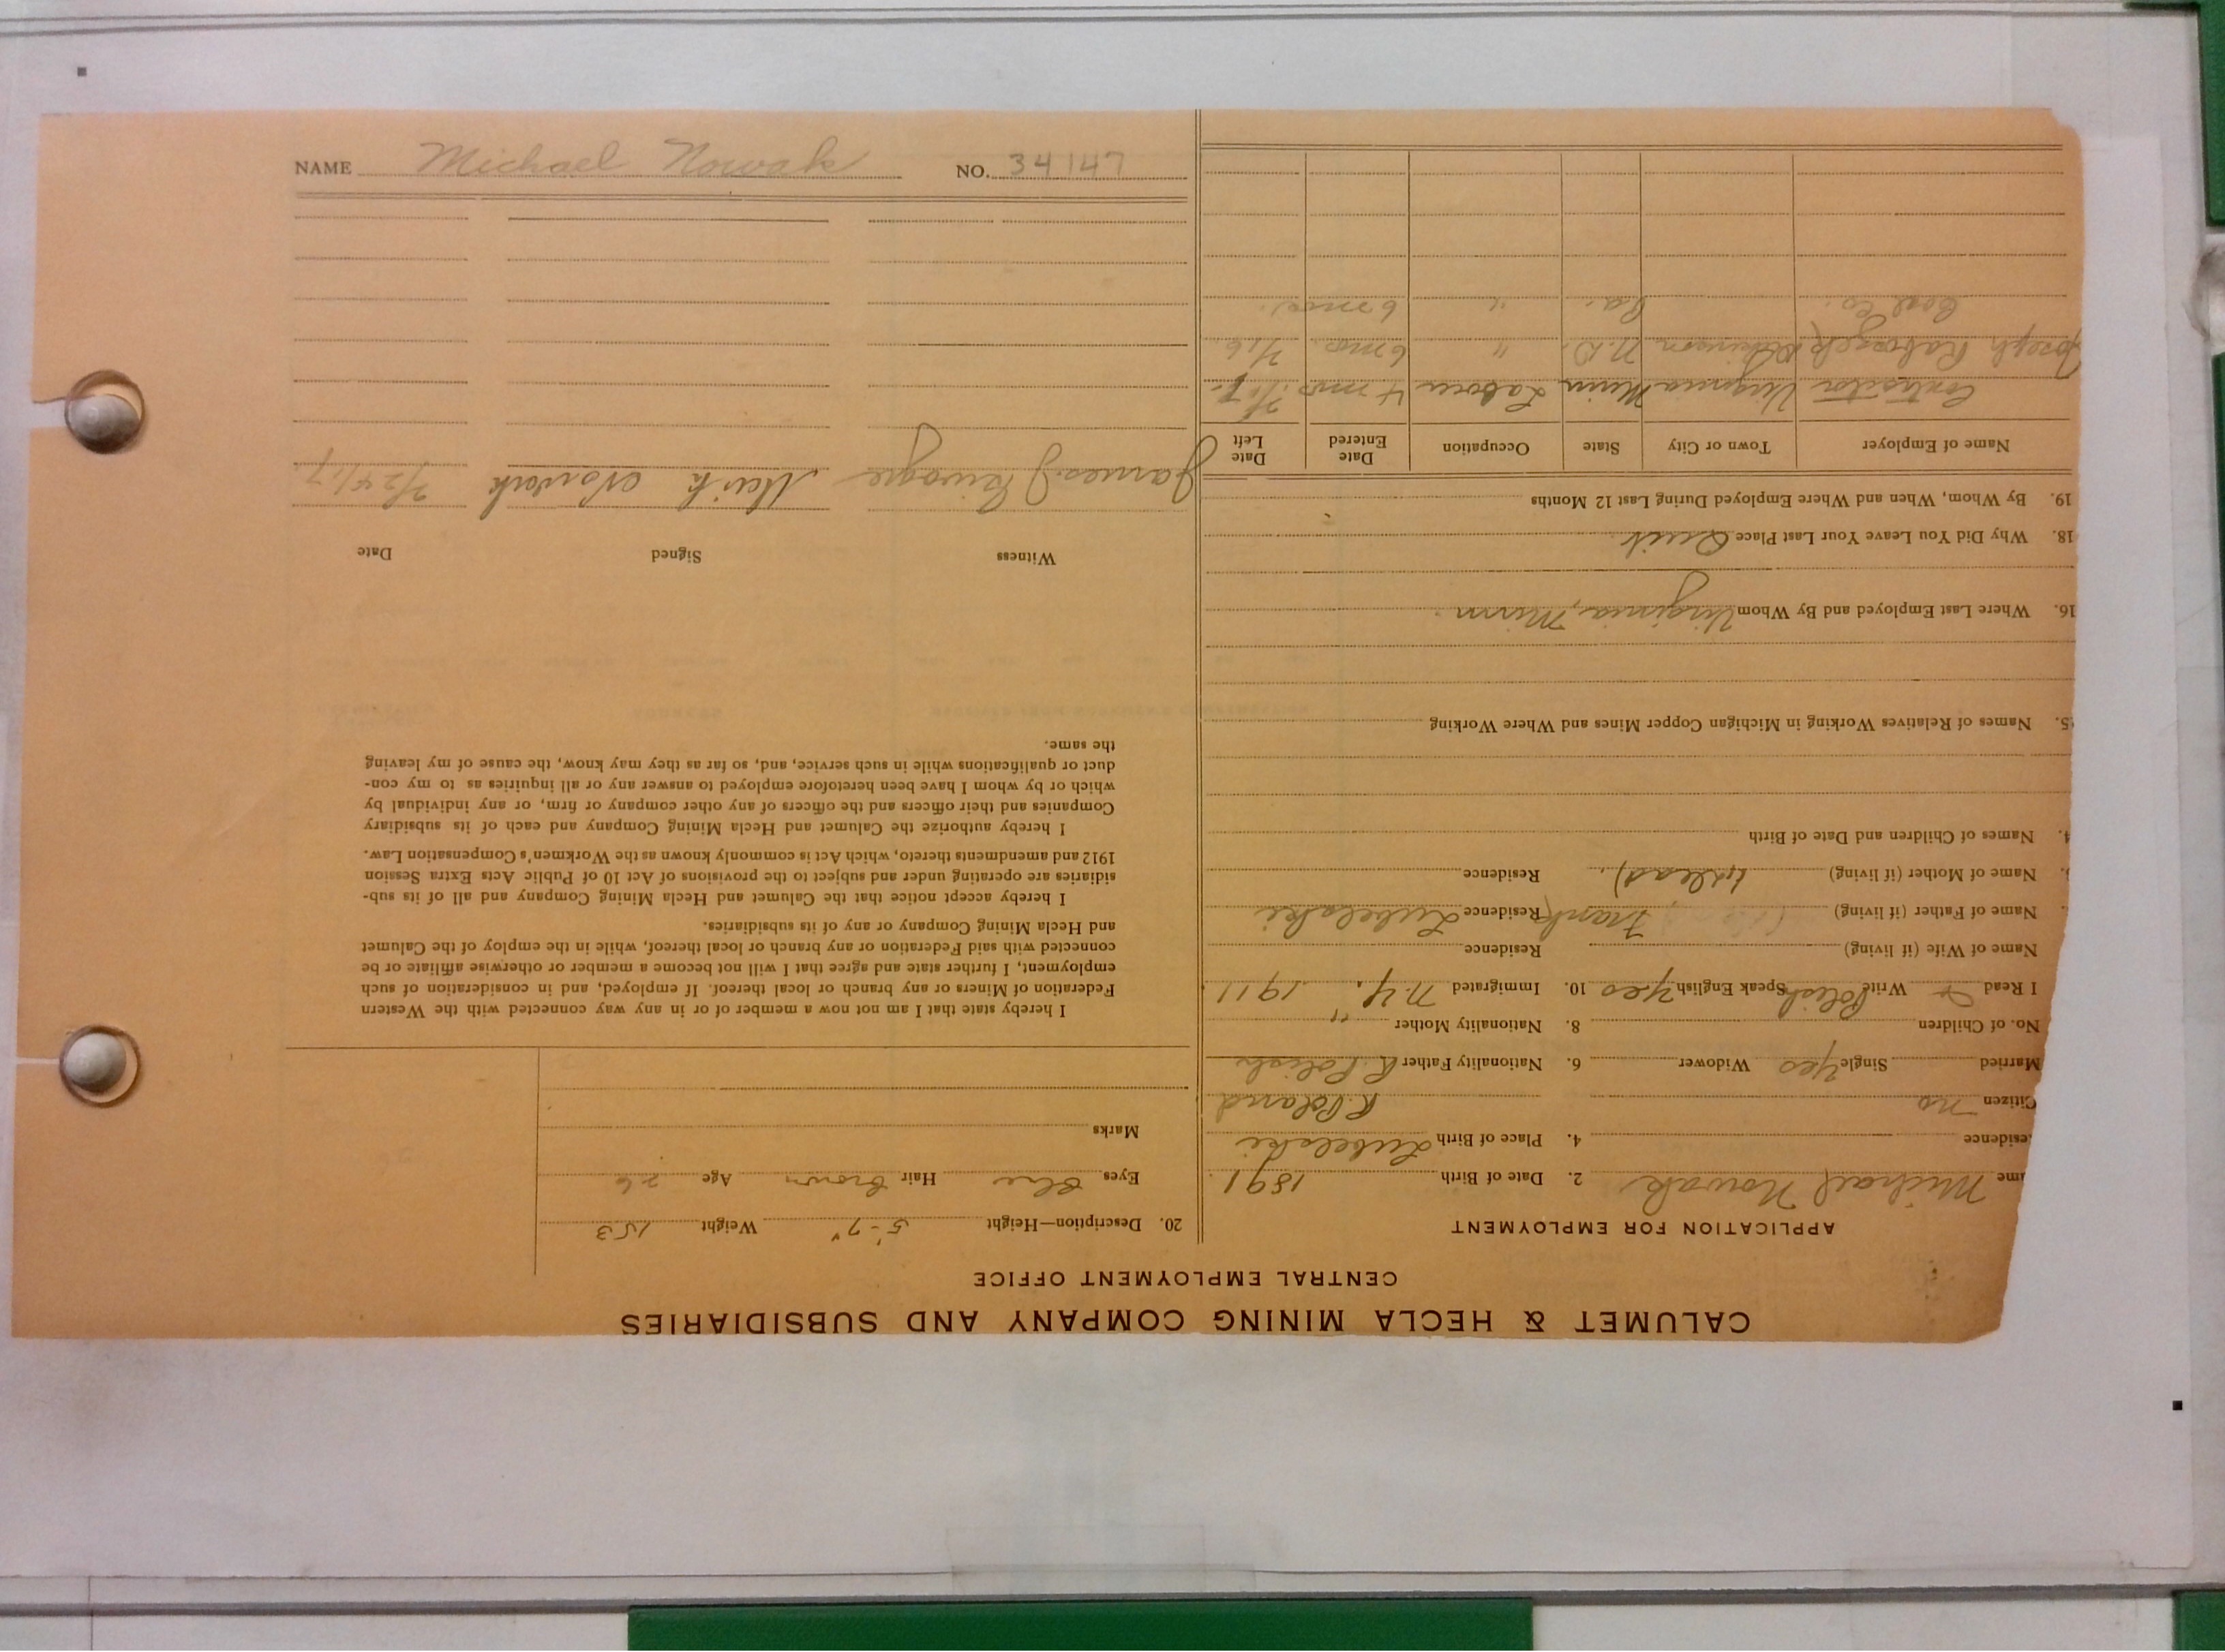 NAME Michael Nowak NO. 34147
CALUMET & HECLA MINING COMPANY AND SUBSIDIARIES
CENTRAL EMPLOYMENT OFFICE
APPLICATION FOR EMPLOYMENT
ame Michael Nowak 2. Date of Birth 1891
esidence 4. Place of Birth Lubelski
Citizen no R. Poland
Married Single yes Widower 6. Nationality Father R. Polish
No. of Children 8. Nationality Mother "
I Read & Write Polish Speak English yes 10. Immigrated N.Y. 1911
Name of Wife (if living) Residence
Name of Father (if living) Frank Residence Lubelski
Name of Mother (if living) (dead) Residence
4. Names of Children and Date of Birth
5. Names of Relatives Working in Michigan Copper Mines and Where Working
16. Where Last Employed and By Whom Virginia, Minn.
18. Why Did You Leave Your Last Place Quit
19. By Whom, When and Where Employed During Last 12 Months
Name of Employer Town or City State Occupation Date Entered Date Left
Contractor Virginia Minn Laborer 4 mos. 7/17
Joseph N.D. " 6 mos. 7/16
Coal Co. Pa. " 6 mos.
20. Description—Height 5'-7" Weight 153
Eyes Blue Hair Brown Age 26
Marks
I hereby state that I am not now a member of or in any way connected with the Western
Federation of Miners or any branch or local thereof. If employed, and in consideration of such
employment, I further state and agree that I will not become a member or otherwise affiliate or be
connected with said Federation or any branch or local thereof, while in the employ of the Calumet
and Hecla Mining Company or any of its subsidiaries.
I hereby accept notice that the Calumet and Hecla Mining Company and all of its sub-
sidiaries are operating under and subject to the provisions of Act 10 of Public Acts Extra Session
1912 and amendments thereto, which Act is commonly known as the Workmen's Compensation Law.
I hereby authorize the Calumet and Hecla Mining Company and each of its subsidiary
Companies and their officers and the officers of any other company or firm, or any individual by
which or by whom I have been heretofore employed to answer any or all inquiries as to my con-
duct or qualifications while in such service, and, so far as they may know, the cause of my leaving
the same.
Witness Signed Date
James J Nowak 7/24/17